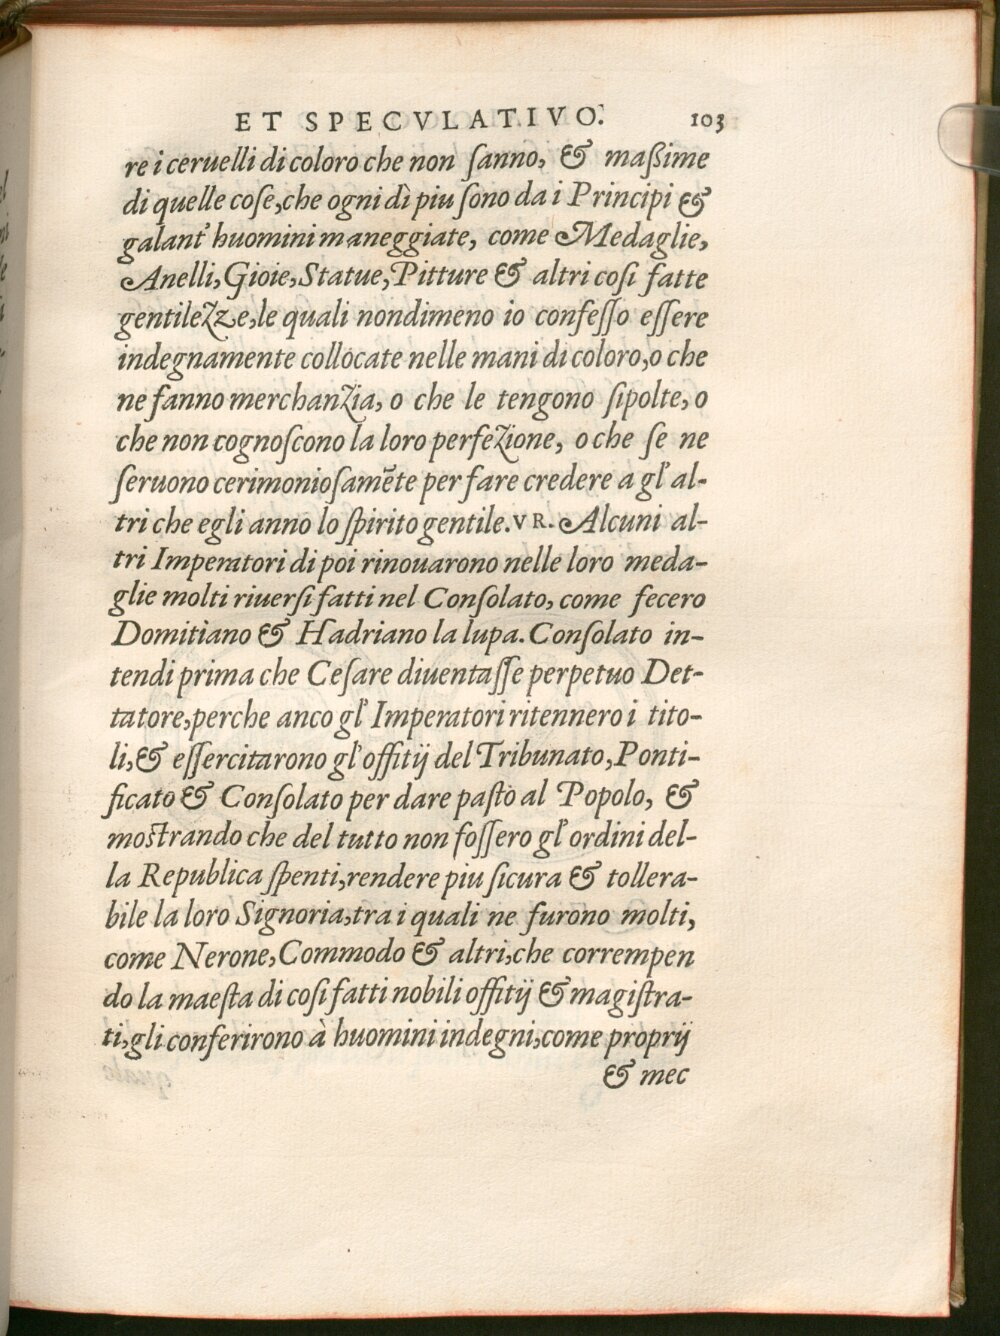 ET SPECVLATIVO. 103
re i ceruelli di coloro che non ſanno, & maßime
di quelle coſe, che ogni dì piu ſono da i Principi &
galant' huomini maneggiate, come Medaglie,
Anelli, Gioie, Statue, Pitture & altri coſi fatte
gentilezze, le quali nondimeno io confeſſo eſſere
indegnamente collocate nelle mani di coloro, o che
ne fanno merchanzia, o che le tengono ſipolte, o
che non cognoſcono la loro perfezione, o che ſe ne
ſeruono cerimonioſamẽte per fare credere a gl' al-
tri che egli anno lo ſpirito gentile. VR. Alcuni al-
tri Imperatori di poi rinouarono nelle loro meda-
glie molti riuerſi fatti nel Conſolato, come fecero
Domitiano & Hadriano la lupa. Conſolato in-
tendi prima che Ceſare diuentaſſe perpetuo Det-
tatore, perche anco gl' Imperatori ritennero i tito-
li, & eſſercitarono gl' offitij del Tribunato, Ponti-
ficato & Conſolato per dare paſto al Popolo, &
moſtrando che del tutto non foſſero gl' ordini del-
la Republica ſpenti, rendere piu ſicura & tollera-
bile la loro Signoria, tra i quali ne furono molti,
come Nerone, Commodo & altri, che corrempen
do la maeſta di coſi fatti nobili offitij & magiſtra-
ti, gli conferirono à huomini indegni, come proprij
& mec